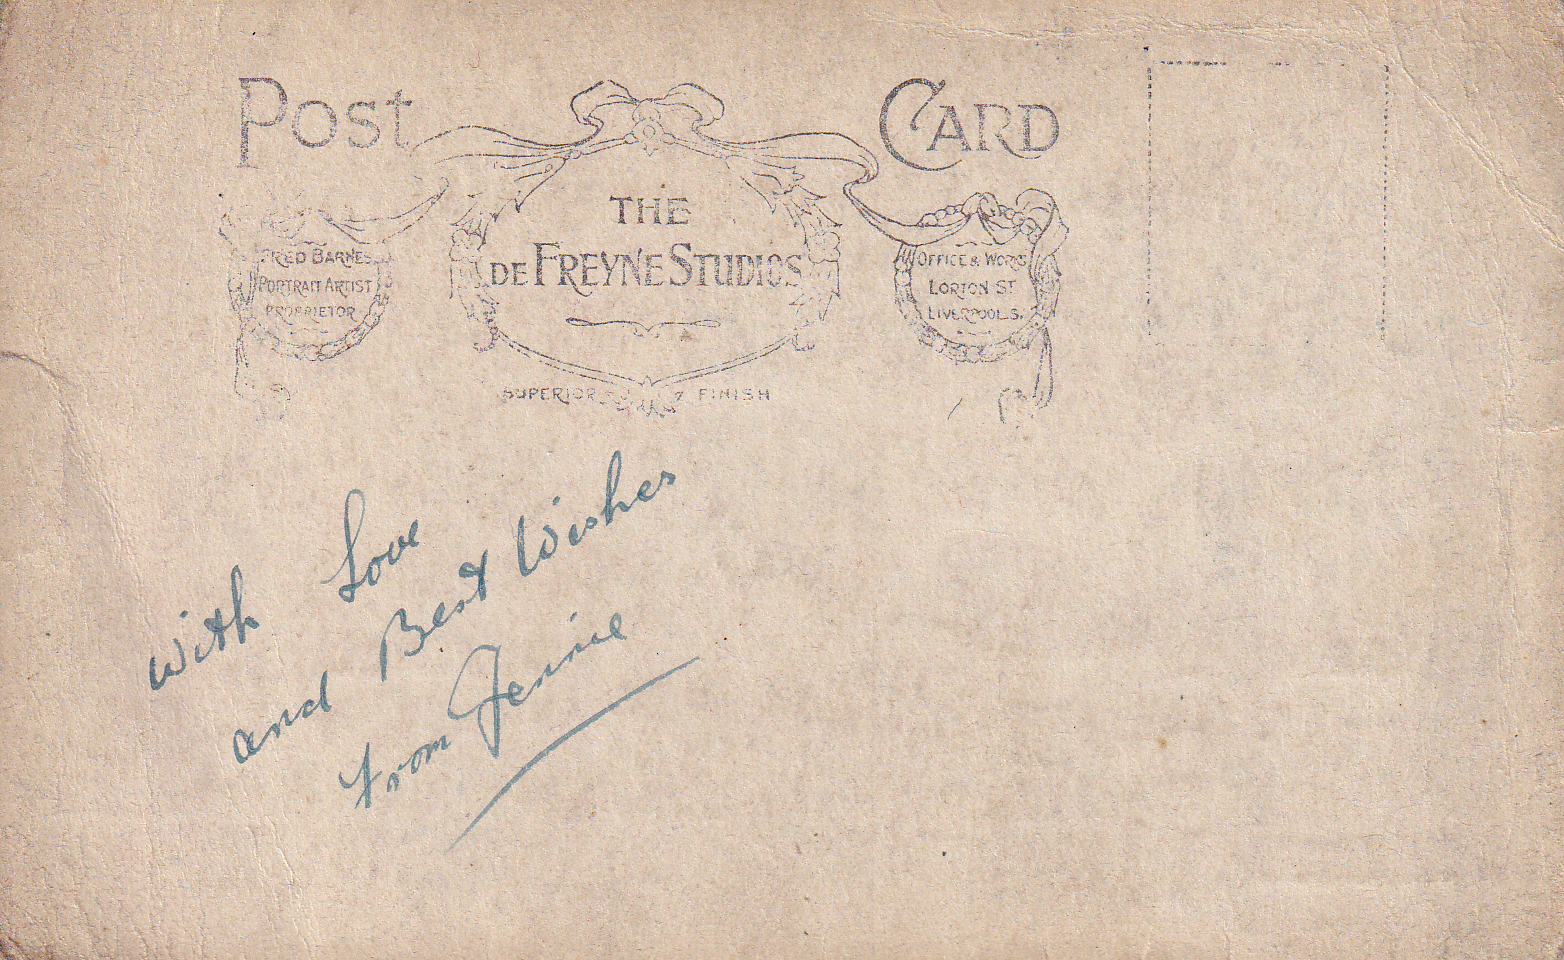 POST CARD
THE
DE FREYNE STUDIOS
FRED BARNES
PORTRAIT ARTIST
PROPRIETOR
OFFICE & WORKS
LORTON ST
LIVERPOOL S.
SUPERIOR FINISH
With Love
and Best Wishes
from Jennie